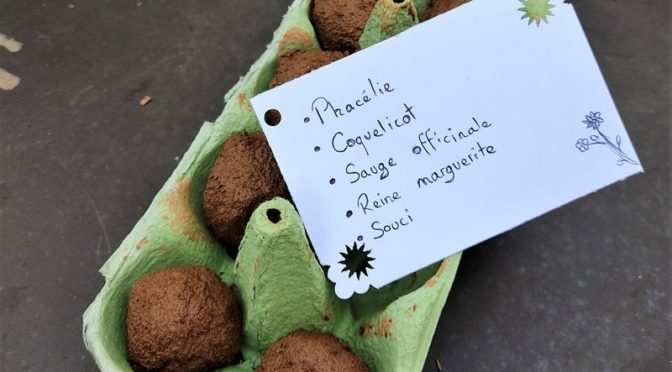 • Phacélie
• Coquelicot
• Sauge officinale
• Reine marguerite
• Souci